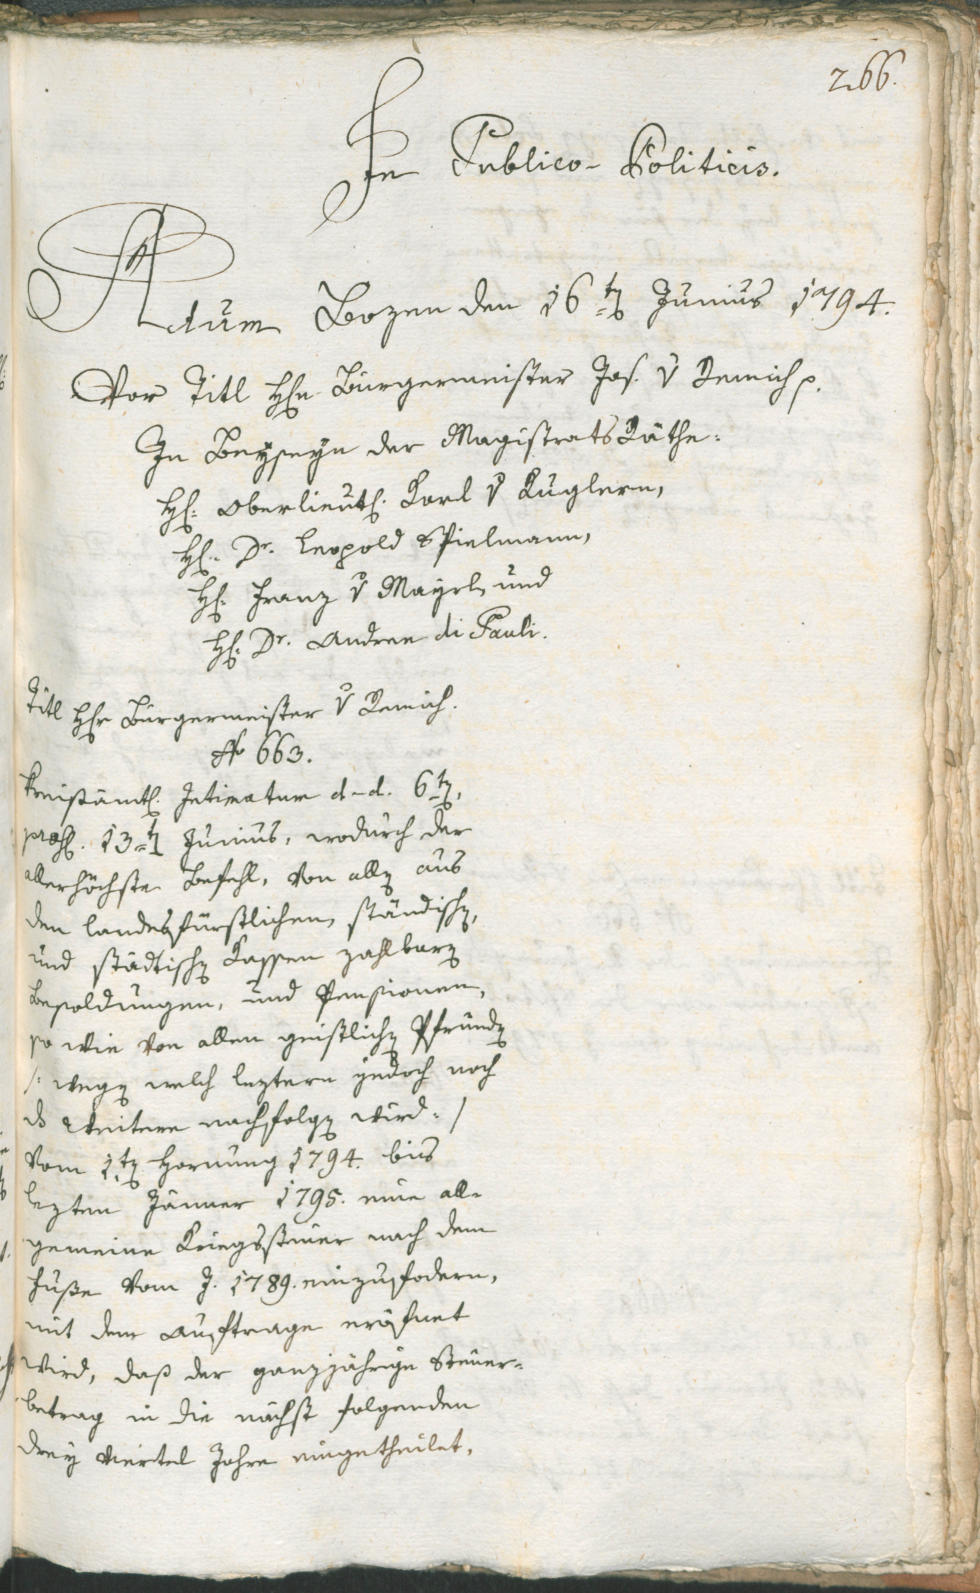 266.
In Publico-Politicis.
Actum Bozen den 16ten Junius 1794.
Vor Titl Hhn Bürgermeister Jos. v Remich p.
In Beyseyn der Magistrats Räthe:
H: Oberlieut. Karl v Kuglern,
H: Dr. Leopold Spielmann,
H: Franz v Mayrl, und
H: Dr. Andree di Pauli.
Titl Hhr Bürgermeister v Remich.
No 663.
Kreisämtl. Intimatum d-d. 6ten,
praes. 13ten Junius, wodurch der
allerhöchste Befehl, von allen aus
den landesfürstlichen, ständischen,
und städtischen Kassen zahlbaren
Besoldungen, und Pensionen,
so wie von allen geistlichen Pfründen
/: wegen welch leztern jedoch noch
das Weitere nachfolgen wird :/
vom 1ten Hornung 1794. bis
lezten Jänner 1795. eine all-
gemeine Kriegssteuer nach dem
Fuße vom J. 1789. einzufodern,
mit dem Auftrage eröfnet
wird, daß der ganzjährige Steuer-
betrag in die nächst folgenden
drey viertel Jahre eingetheilet,